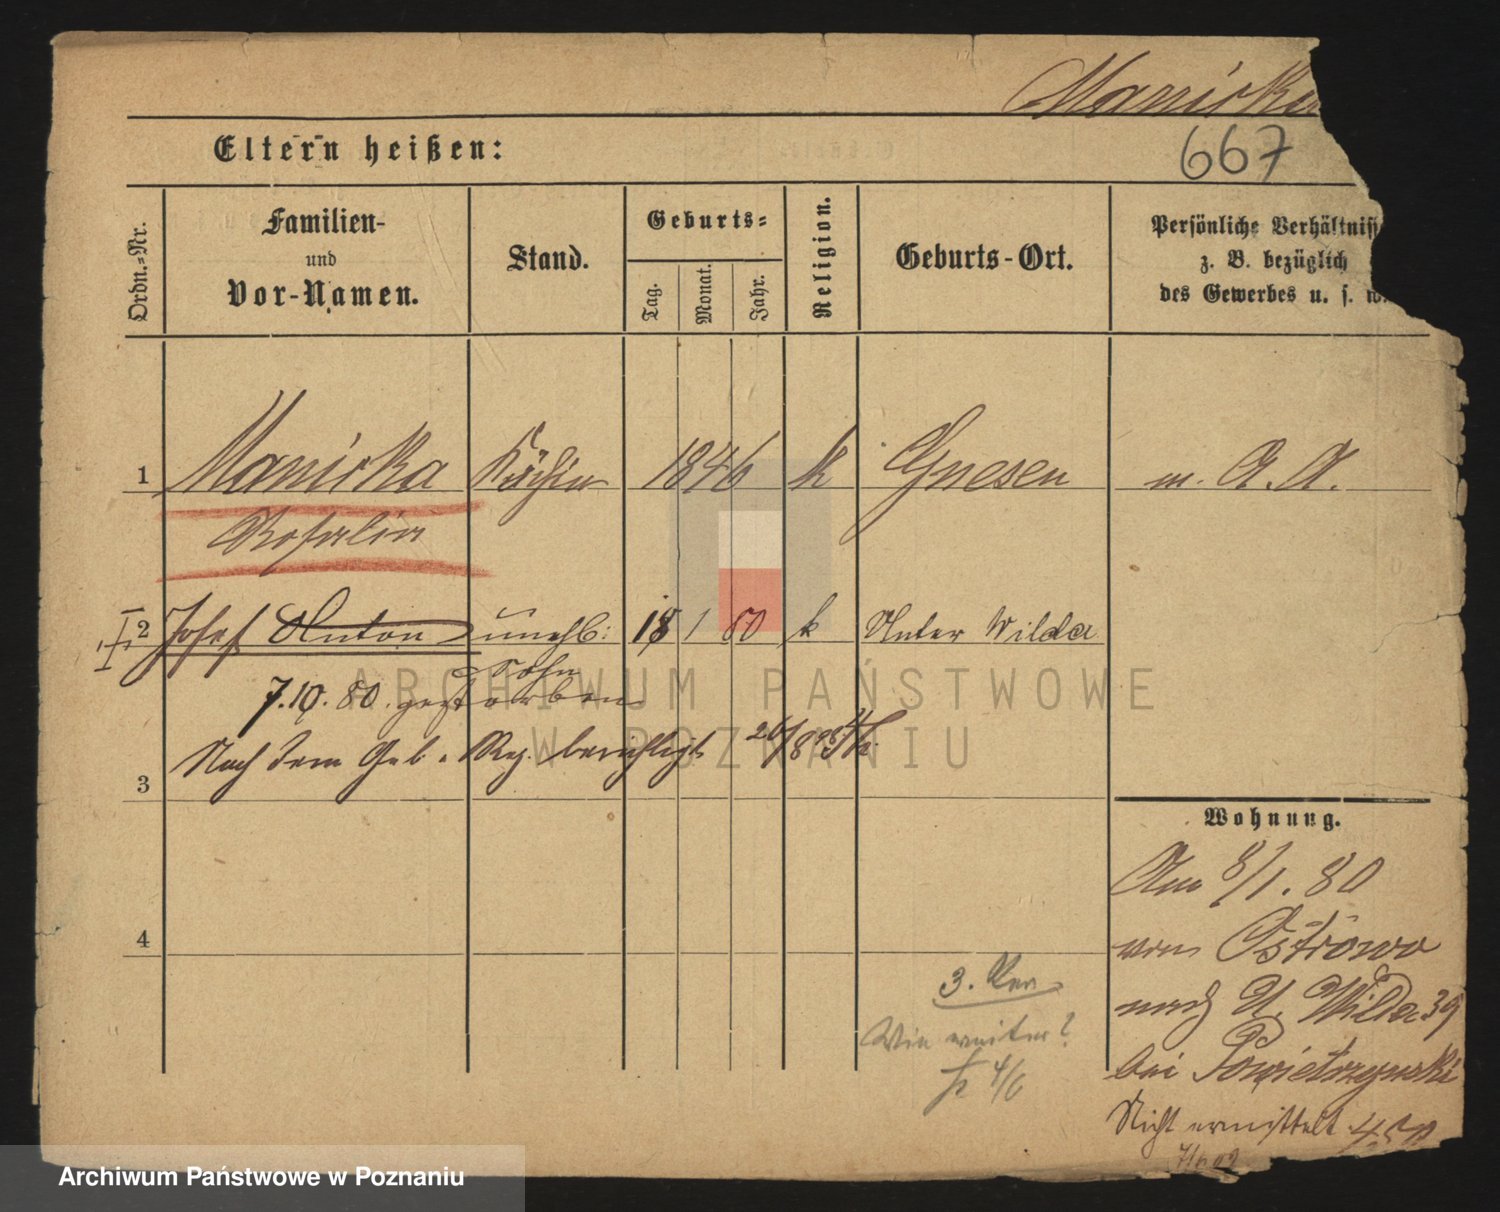 Manicka
667
Eltern heißen:
Ordn.-Nr.
Familien-
und
Vor-Namen.
Stand.
Geburts-
Tag.
Monat.
Jahr.
Religion.
Geburts-Ort.
Persönliche Verhältniss
z. B. bezüglich
des Gewerbes u. s. w.
1 Manicka Köchin 1846 k Gnesen m. A. A.
Rosalia
2 Josef Anton unehl: 18 1 80 k Unter Wilda
Sohn
7.10.80. gestorben
Nach dem Geb. Reg. berichtigt
3
4
Wohnung.
Am 8/1. 80
von Ostrowo
nach U. Wilda 39
bei Powietrzynski
Nicht ermittelt
3.
Wie weiter?
4/6
ARCHIWUM PAŃSTWOWE
W POZNANIU
Archiwum Państwowe w Poznaniu